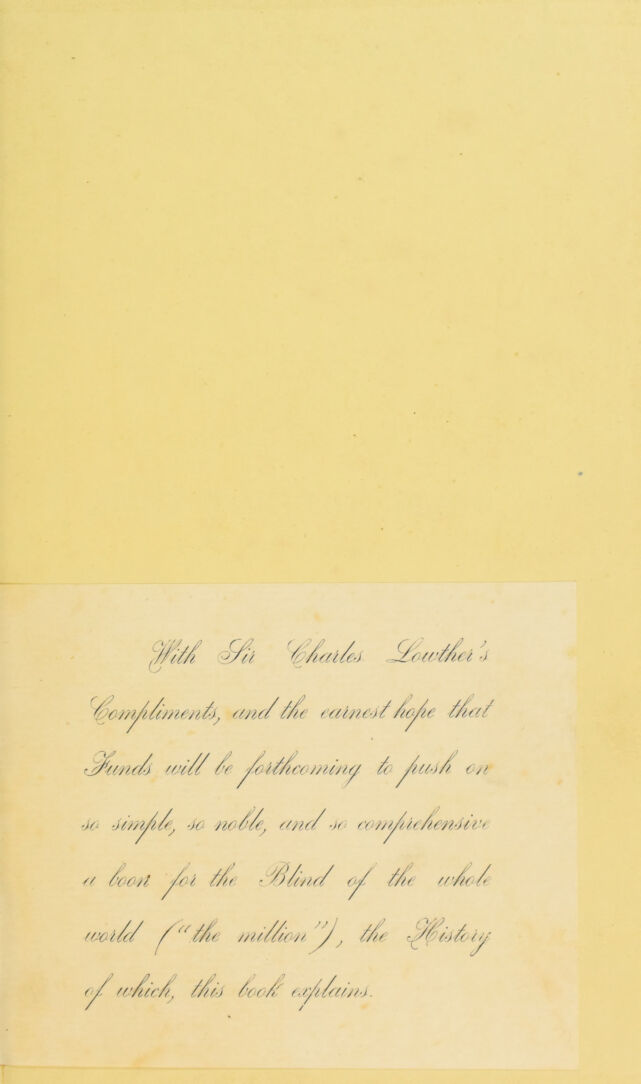 With Sir Charles Lowther's
Compliments, and the earnest hope that
Funds will be forthcoming to push on
so simple, so noble, and so comprehensive
a boon for the Blind of the whole
world ("the million"), the History
of which, this book explains.